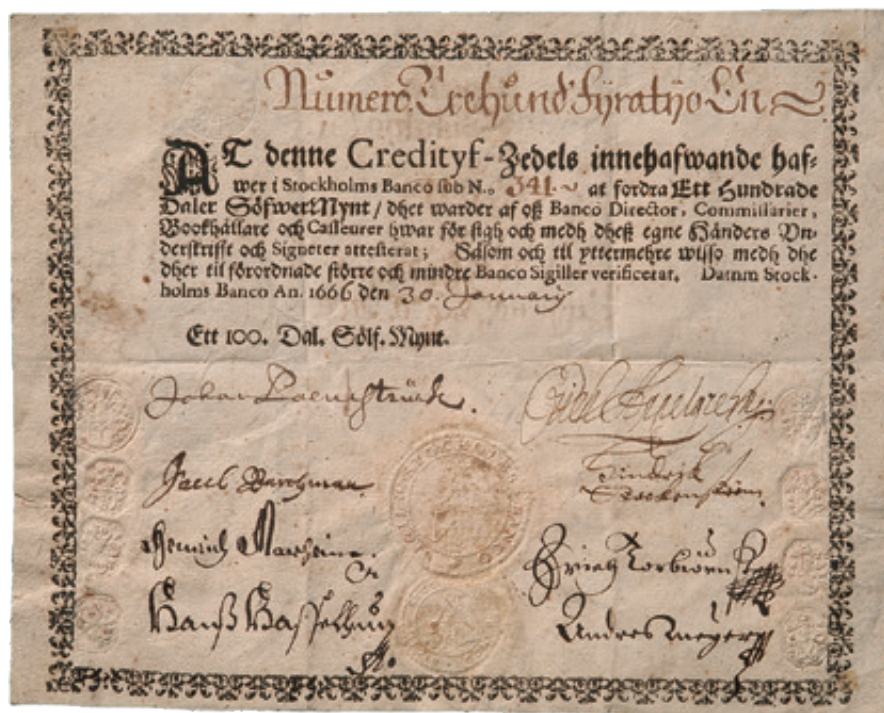 Numero Trehund Fyratijo En
AT denne Credityf-Zedels innehafwande haf-
wer i Stockholms Banco sub N.o 341. at fordra Ett Hundrade
Daler Söfwer Mynt / dhet warder af oß Banco Director, Commissarier,
Bookhållare och Casseurer hwar för sigh och medh dheß egne Händers Vn-
derskrifft och Signeter attesterat; Såsom och til yttermehre wisso medh dhe
dher til förordnade större och mindre Banco Sigiller verificerat. Datum Stock-
holms Banco An. 1666 den 30. January
Ett 100. Dal. Sölf. Mynt.
Johan
Jacob
Hindrich
Heinrich
Hanß
Andres Meyer